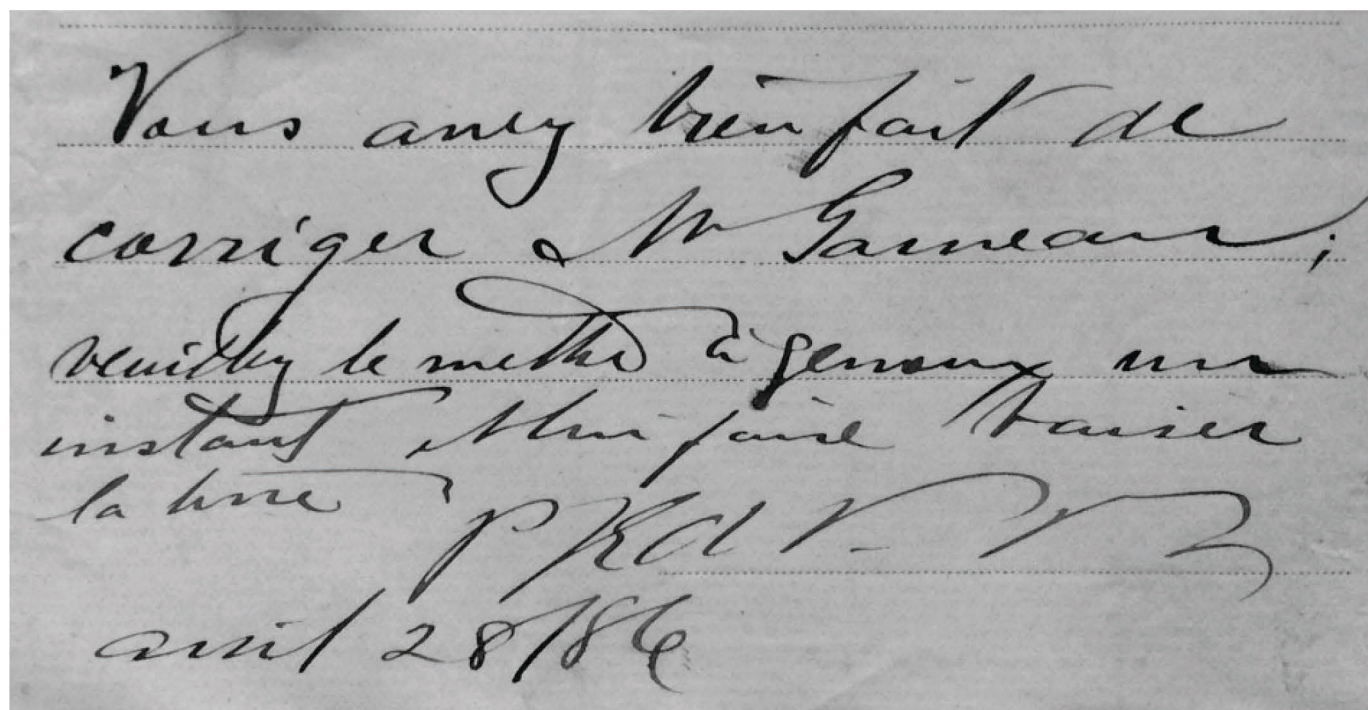 Vous avez bien fait de
corriger M Garneau ;
veuillez le mettre à genoux un
instant et lui faire baiser
la terre
avril 28/86